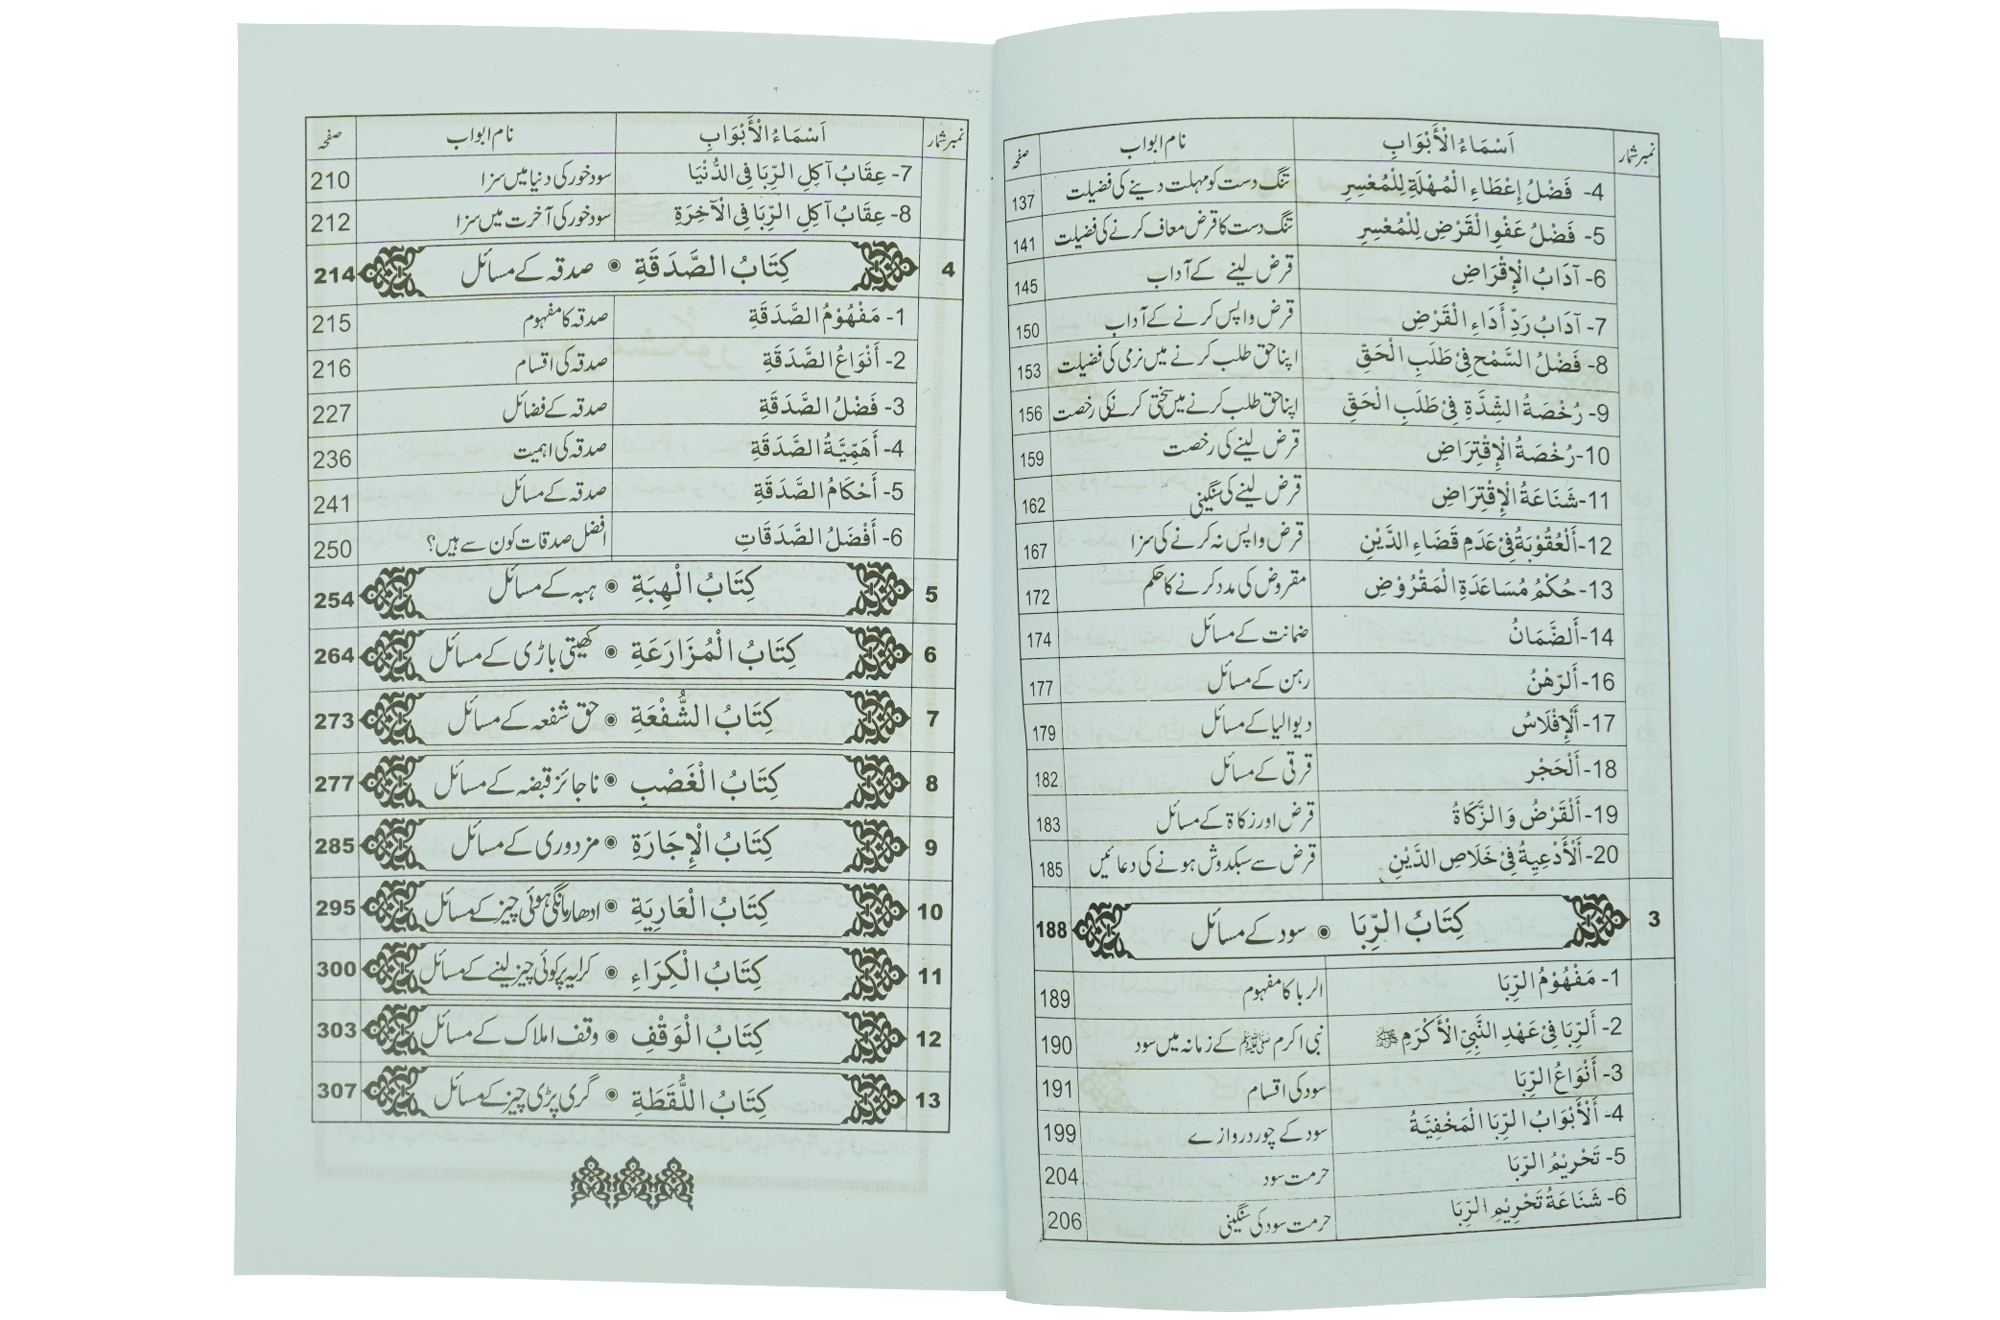 نمبر شمار اَسْمَاءُ الْأَبْوَابِ نام ابواب صفحہ
4- فَضْلُ إِعْطَاءِ الْمُهْلَةِ لِلْمُعْسِرِ تنگ دست کو مہلت دینے کی فضیلت 137
5- فَضْلُ عَفْوِ الْقَرْضِ لِلْمُعْسِرِ تنگ دست کا قرض معاف کرنے کی فضیلت 141
6- آدَابُ الْإِقْرَاضِ قرض لینے کے آداب 145
7- آدَابُ رَدِّ أَدَاءِ الْقَرْضِ قرض واپس کرنے کے آداب 150
8- فَضْلُ السَّمْحِ فِيْ طَلَبِ الْحَقِّ اپنا حق طلب کرنے میں نرمی کی فضیلت 153
9- رُخْصَةُ الشِّدَّةِ فِيْ طَلَبِ الْحَقِّ اپنا حق طلب کرنے میں سختی کرنے کی رخصت 156
10- رُخْصَةُ الْإِقْتِرَاضِ قرض لینے کی رخصت 159
11- شَنَاعَةُ الْإِقْتِرَاضِ قرض لینے کی سنگینی 162
12- اَلْعُقُوْبَةُ فِيْ عَدَمِ قَضَاءِ الدَّيْنِ قرض واپس نہ کرنے کی سزا 167
13- حُكْمُ مُسَاعَدَةِ الْمَقْرُوْضِ مقروض کی مدد کرنے کا حکم 172
14- اَلضَّمَانُ ضمانت کے مسائل 174
16- اَلرَّهْنُ رہن کے مسائل 177
17- اَلْإِفْلَاسُ دیوالیا کے مسائل 179
18- اَلْحَجْر قرقی کے مسائل 182
19- اَلْقَرْضُ وَالزَّكَاةُ قرض اور زکاۃ کے مسائل 183
20- اَلْأَدْعِيَةُ فِيْ خَلَاصِ الدَّيْنِ قرض سے سبکدوش ہونے کی دعائیں 185
3 كِتَابُ الرِّبَا ◉ سود کے مسائل 188
1- مَفْهُوْمُ الرِّبَا الربا کا مفہوم 189
2- اَلرِّبَا فِيْ عَهْدِ النَّبِيِّ الْأَكْرَمِ ﷺ نبی اکرم ﷺ کے زمانہ میں سود 190
3- أَنْوَاعُ الرِّبَا سود کی اقسام 191
4- اَلْأَبْوَابُ الرِّبَا الْمَخْفِيَّةُ سود کے چور دروازے 199
5- تَحْرِيْمُ الرِّبَا حرمت سود 204
6- شَنَاعَةُ تَحْرِيْمِ الرِّبَا حرمت سود کی سنگینی 206
نمبر شمار اَسْمَاءُ الْأَبْوَابِ نام ابواب صفحہ
7- عِقَابُ آكِلِ الرِّبَا فِي الدُّنْيَا سود خور کی دنیا میں سزا 210
8- عِقَابُ آكِلِ الرِّبَا فِي الْآخِرَةِ سود خور کی آخرت میں سزا 212
4 كِتَابُ الصَّدَقَةِ ◉ صدقہ کے مسائل 214
1- مَفْهُوْمُ الصَّدَقَةِ صدقہ کا مفہوم 215
2- أَنْوَاعُ الصَّدَقَةِ صدقہ کی اقسام 216
3- فَضْلُ الصَّدَقَةِ صدقہ کے فضائل 227
4- أَهَمِّيَّةُ الصَّدَقَةِ صدقہ کی اہمیت 236
5- أَحْكَامُ الصَّدَقَةِ صدقہ کے مسائل 241
6- أَفْضَلُ الصَّدَقَاتِ افضل صدقات کون سے ہیں؟ 250
5 كِتَابُ الْهِبَةِ ◉ ہبہ کے مسائل 254
6 كِتَابُ الْمُزَارَعَةِ ◉ کھیتی باڑی کے مسائل 264
7 كِتَابُ الشُّفْعَةِ ◉ حق شفعہ کے مسائل 273
8 كِتَابُ الْغَصْبِ ◉ ناجائز قبضہ کے مسائل 277
9 كِتَابُ الْإِجَارَةِ ◉ مزدوری کے مسائل 285
10 كِتَابُ الْعَارِيَةِ ◉ ادھار مانگی ہوئی چیز کے مسائل 295
11 كِتَابُ الْكِرَاءِ ◉ کرایہ پر کوئی چیز لینے کے مسائل 300
12 كِتَابُ الْوَقْفِ ◉ وقف املاک کے مسائل 303
13 كِتَابُ اللُّقَطَةِ ◉ گری پڑی چیز کے مسائل 307